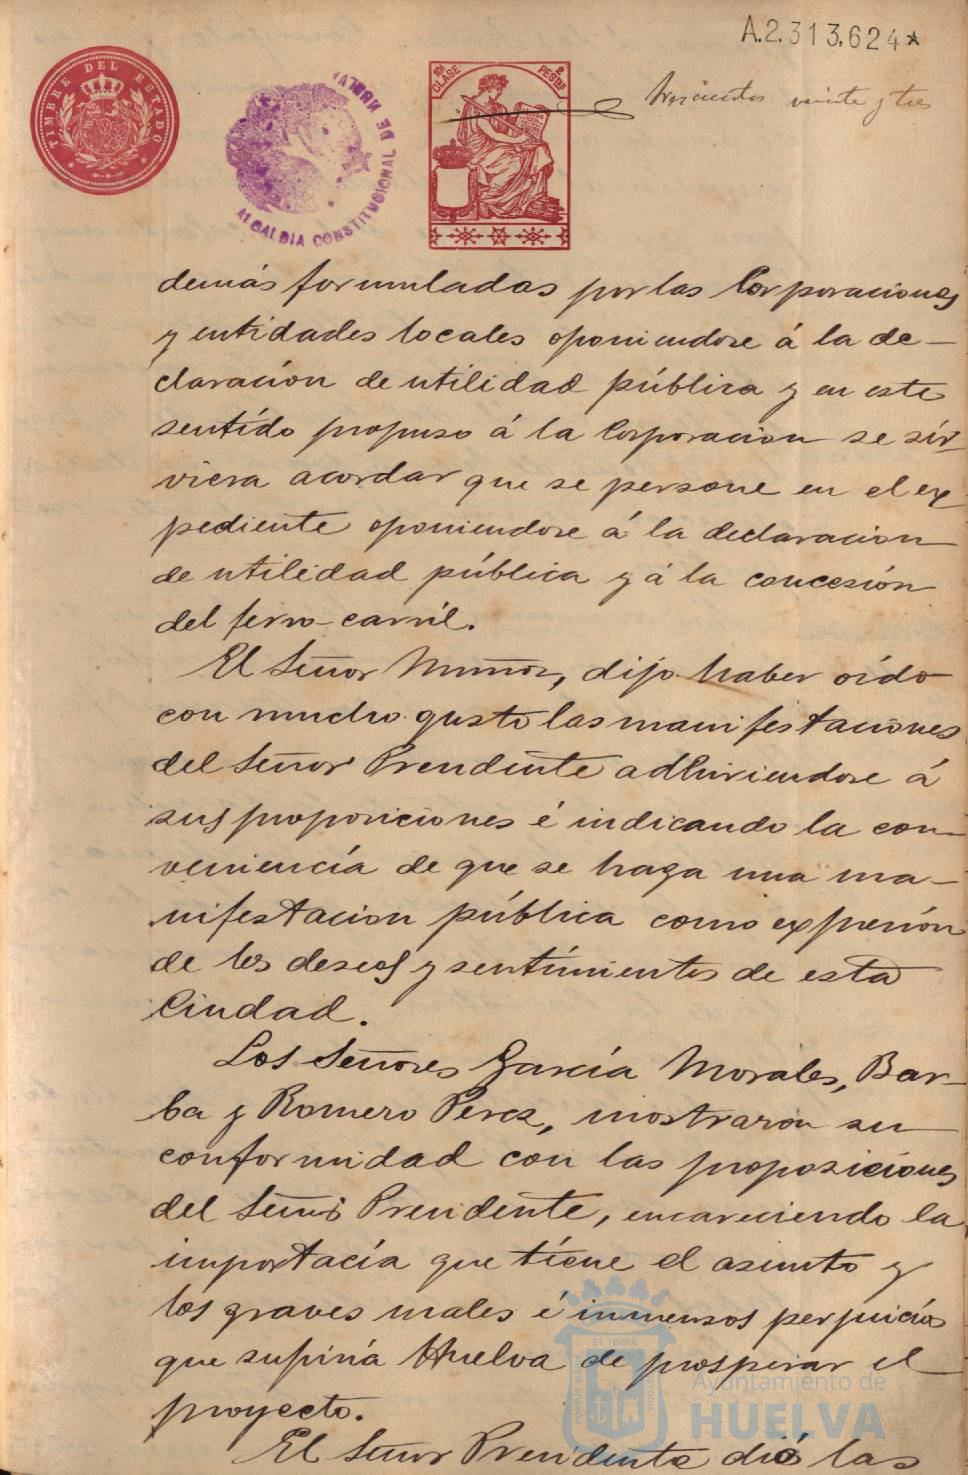 A.2.313.624*
TIMBRE DEL ESTADO
ALCALDIA CONSTITUCIONAL DE HUELVA
10ª CLASE
2 PESETAS
trescientos veinte y tres
demás formuladas por las Corporaciones
y entidades locales oponiendose á la de-
claración de utilidad pública y en este
sentído propuso á la Corporacion se sír-
viera acordar que se persone en el ex-
pediente oponiendose á la declaracion
de utilidad pública y á la concesión
del ferro-carril.
El Señor Muñoz, dijo haber oído
con mucho gusto las manifestaciones
del Señor Presidente adhiriendose á
sus proposiciones é indicando la con-
veniencía de que se haga una ma-
nifestacion pública como expresión
de los deseos y sentímientos de esta
Ciudad.
Los Señores García Morales, Bar-
ba y Romero Perez, mostraron su
conformidad con las proposiciones
del Señor Presidente, encareciendo la
importacía que tíene el asunto y
los graves males é inmensos perjuicios
que sufriria Huelva de prosperar el
proyecto.
El Señor Presidente dió las
Ayuntamiento de
HUELVA